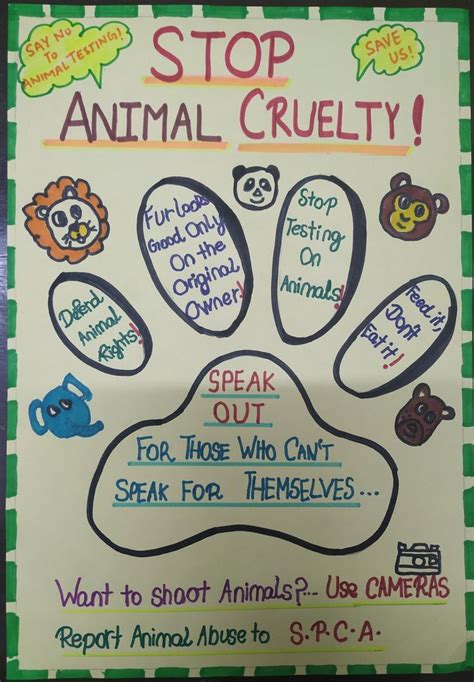 SAY NO
TO
ANIMAL TESTING!
SAVE
US!
STOP
ANIMAL CRUELTY!
Defend
Animal
Rights!
Fur Looks
Good Only
On the
Original
Owner!
Stop
Testing
On
Animals!
Feed it,
Don't
Eat it!
SPEAK
OUT
FOR THOSE WHO CAN'T
SPEAK FOR THEMSELVES...
Want to shoot Animals?... Use CAMERAS
Report Animal Abuse to S.P.C.A.